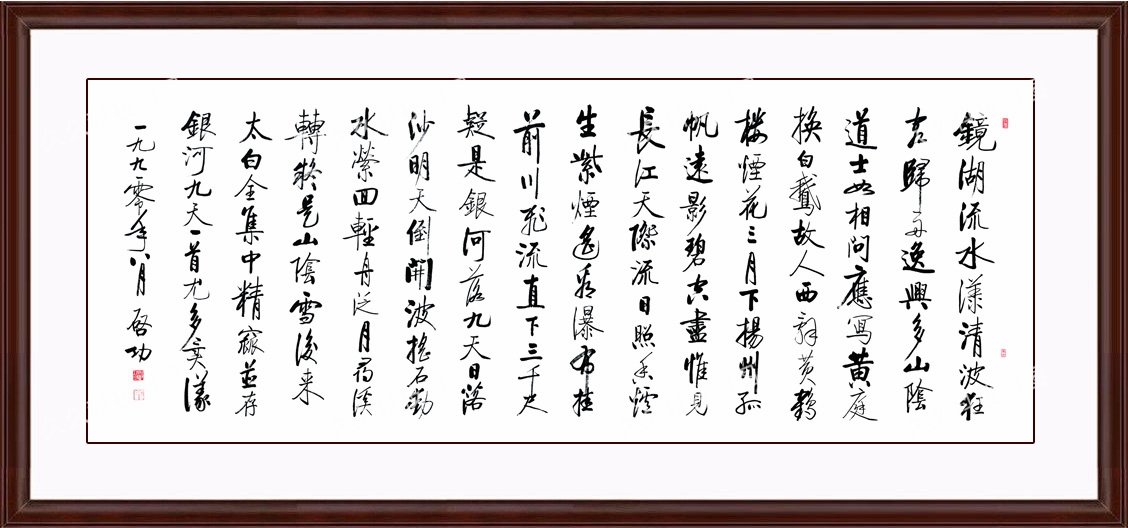 鏡湖流水漾清波狂
客歸舟逸興多山陰
道士如相問應寫黃庭
換白鵝故人西辭黃鶴
樓煙花三月下揚州孤
帆遠影碧空盡惟見
長江天際流日照香爐
生紫煙遙看瀑布挂
前川飛流直下三千尺
疑是銀河落九天日落
沙明天倒開波搖石動
水縈回輕舟泛月尋溪
轉疑是山陰雪後來
太白全集中精並存
銀河九天一首尤多
一九九零年八月 啓功